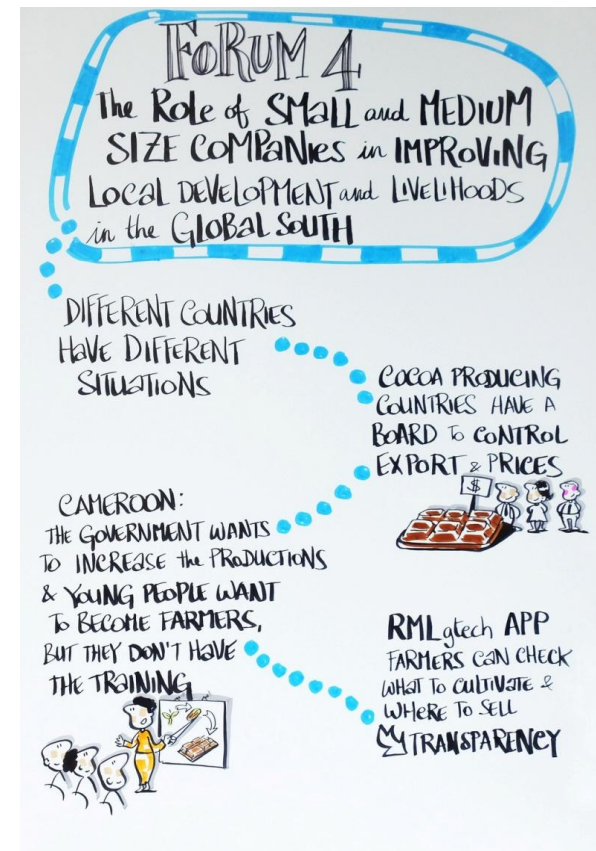 FORUM 4
The Role of SMALL and MEDIUM
SIZE COMPANIES in IMPROVING
LOCAL DEVELOPMENT and LIVELIHOODS
in the GLOBAL SOUTH
DIFFERENT COUNTRIES
HAVE DIFFERENT
SITUATIONS
COCOA PRODUCING
COUNTRIES HAVE A
BOARD to CONTROL
EXPORT & PRICES
$
CAMEROON:
THE GOVERNMENT WANTS
TO INCREASE the PRODUCTIONS
& YOUNG PEOPLE WANT
To BECOME FARMERS,
BUT THEY DON'T HAVE
THE TRAINING
RMLgtech APP
FARMERS CAN CHECK
WHAT TO CULTIVATE &
WHERE TO SELL
TRANSPARENCY